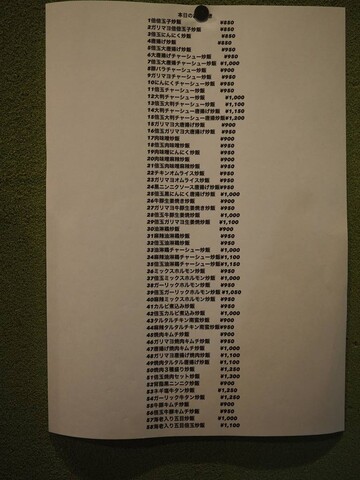 本日の
1倍倍玉子炒飯 ¥850
2ガリマヨ倍倍玉子炒飯 ¥850
3倍玉にんにく炒飯 ¥850
4唐揚げ炒飯 ¥850
5倍玉大唐揚げ炒飯 ¥950
6大唐揚げチャーシュー炒飯 ¥950
7倍玉大唐揚チャーシュー炒飯 ¥1,000
8豚バラチャーシュー炒飯 ¥900
9ガリマヨチャーシュー炒飯 ¥950
10にんにくチャーシュー炒飯 ¥950
11倍玉チャーシュー炒飯 ¥950
12大判チャーシュー炒飯 ¥1,000
13倍玉大判チャーシュー炒飯 ¥1,100
14大判チャーシュー大唐揚げ炒飯 ¥1,150
15倍玉大判チャーシュー唐揚炒飯 ¥1,200
16ガリマヨ大唐揚げ炒飯 ¥900
16倍玉ガリマヨ大唐揚げ炒飯 ¥950
17肉味噌炒飯 ¥900
18倍玉肉味噌炒飯 ¥950
19肉味噌にんにく炒飯 ¥950
20肉味噌麻辣炒飯 ¥900
21倍玉肉味噌麻辣炒飯 ¥950
22チキンオムライス炒飯 ¥950
23ガリマヨオムライス炒飯 ¥950
24黒ニンニクソース唐揚げ炒飯 ¥950
25倍玉黒にんにく唐揚げ炒飯 ¥1,000
26牛豚生姜焼き炒飯 ¥900
27ガリマヨ牛豚生姜焼き炒飯 ¥950
28倍玉牛豚生姜焼炒飯 ¥1,000
29倍玉ガリマヨ生姜焼炒飯 ¥1,100
30油淋鶏炒飯 ¥900
31麻辣油淋鶏炒飯 ¥950
32倍玉油淋鶏炒飯 ¥950
33油淋鶏チャーシュー炒飯 ¥1,000
34麻辣油淋鶏チャーシュー炒飯 ¥1,100
35倍玉油淋鶏チャーシュー炒飯 ¥1,150
36ミックスホルモン炒飯 ¥950
37倍玉ミックスホルモン炒飯 ¥1,000
38ガーリックホルモン炒飯 ¥950
39倍玉ガーリックホルモン炒飯 ¥1,050
40麻辣ミックスホルモン炒飯 ¥950
41カルビ煮込み炒飯 ¥950
42倍玉カルビ煮込み炒飯 ¥1,000
43タルタルチキン南蛮炒飯 ¥900
44麻辣タルタルチキン南蛮炒飯 ¥950
45焼肉キムチ炒飯 ¥900
46ガリマヨ焼肉キムチ炒飯 ¥950
47唐揚げ焼肉キムチ炒飯 ¥1,000
48ガリマヨ唐揚げ焼肉炒飯 ¥1,100
49焼肉タルタル唐揚げ炒飯 ¥1,100
50焼肉3種盛り炒飯 ¥1,250
51倍玉焼肉セット炒飯 ¥1,300
52宮黒黒ニンニク炒飯 ¥900
53ネギ塩牛タン炒飯 ¥1,250
54ガーリック牛タン炒飯 ¥1,250
55牛豚キムチ炒飯 ¥900
56倍玉牛豚キムチ炒飯 ¥950
57海老入り五目炒飯 ¥1,000
58海老入り五目倍玉炒飯 ¥1,100